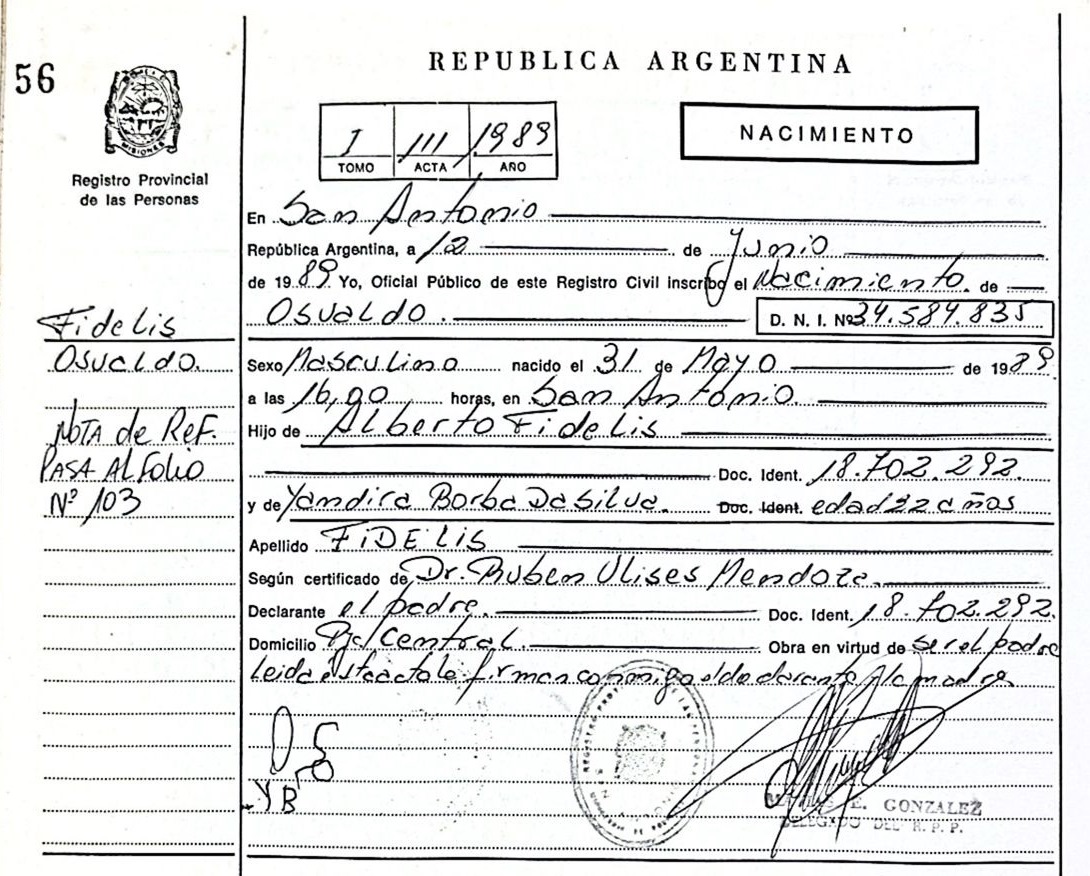 56
MISIONES
Registro Provincial
de las Personas
REPUBLICA ARGENTINA
I III 1989
TOMO ACTA AÑO
NACIMIENTO
En San Antonio
República Argentina, a 12 de Junio
de 1989 Yo, Oficial Público de este Registro Civil inscribo el Nacimiento de
Osvaldo. D. N. I. Nº 34.584.835
Sexo Masculino nacido el 31 de Mayo de 1989
a las 16,00 horas, en San Antonio
Hijo de Alberto Fidelis
Doc. Ident. 18.702.292.
y de Yandira Borba Da Silva. Doc. Ident. edad 22 años
Apellido FIDELIS
Según certificado de Dr. Ruben Ulises Mendoza.
Declarante el padre. Doc. Ident. 18.702.292.
Domicilio Pje Central. Obra en virtud de ser el padre
Leida esta acta la firman conmigo el declarante y la madre
Fidelis
Osvaldo.
NOTA de Ref.
PASA AL FOLIO
Nº 103
YB
E. GONZALEZ
DELEGADO DEL R. P. P.